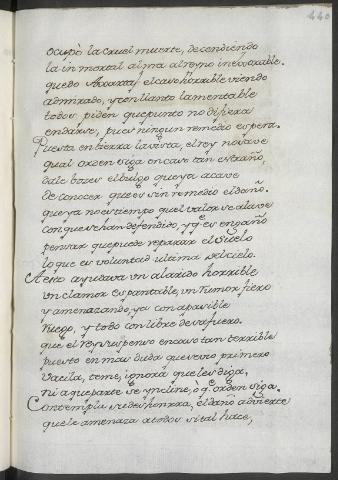 440
ocupò la cruel muerte, decendiendo
la inmortal alma al reyno inexorable.
quedo el caso horrible viendo
admirado, y con llanto lamentable
todos piden que punto no difiera
en darse, pues ningun remedio espera.
Puesta en tierra la vista, el rey no save
qual orden siga en caso tan estraño,
dale bozes el bulgo que ya acave
de conocer que es sin remedio el daño.
que ya no es tiempo quel valor se alave
con que se han defendido, y q es engaño
pensar que puede reparar el suelo
lo que es voluntad ultima del cielo.
A esto ayudava un alarido horrible
un clamor espantable, un rumor fiero
y amenazando, ya con apasible
ruego, y todo con libre desafuero.
que el rey suspenso en caso tan terrible
puesto en mas duda que se vio primero
vacila, teme, ignora que les diga,
ni a que parte se yncline, o q orden siga.
Contempla su deshonrra, el daño advierte
que le amenaza a todos si tal hace,